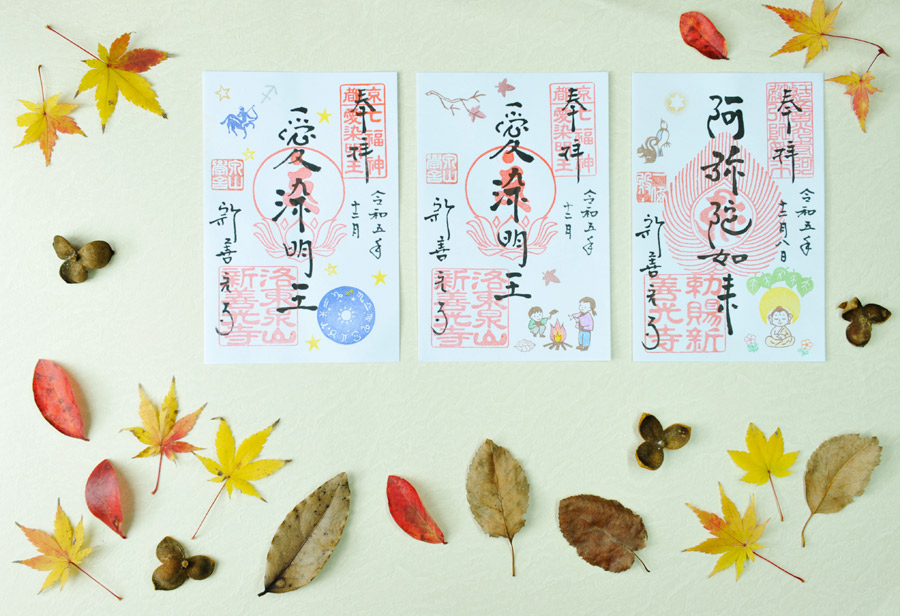 奉拝
京七福神
都愛染明王
令和五年
十二月
愛染明王
新善光寺
洛東泉山
新善光寺
奉拝
京七福神
都愛染明王
令和五年
十二月
愛染明王
新善光寺
洛東泉山
新善光寺
奉拝
令和五年
十二月八日
阿弥陀如来
新善光寺
勅賜新
善光寺